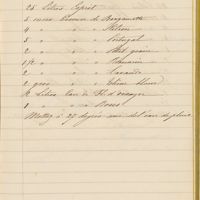 25 Litres Esprit
5 onces Essence de Bergamotte
4 " " "
5 " " " Portugal
2 " " " Petit grain
1/2 " " " Romarin
2 " " " Lavande
2 gros " "
12 Litres Eau de fl d'oranger
1 " " Roses
Mettez à 27 degrés avec de l'eau de pluie